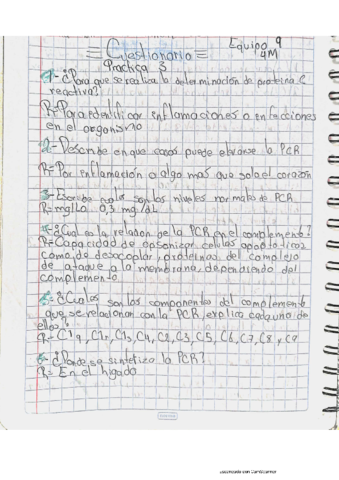 Equipo 9
= Cuestionario = 4M
Practica 3
1.- ¿Para que se realiza la determinación de proteina C
reactiva?
R= Para identificar inflamaciones o infecciones
en el organismo
2.- Describe en que casos puede elevarse la PCR
R= Por inflamación o algo mas que solo el corazon
3.- Escribe cuales son los niveles normales de PCR
R= mg/Lo 0,3 mg/dL
4.- ¿Cual es la relacion de la PCR en el complemento?
R= Capacidad de opsonizar celulas apoptoticas
como de desacoplar proteinas del complejo
de ataque a la membrana dependiendo del
complemento.
5.- ¿Cuales son los componentes del complemento
que se relacionan con la PCR, explica cada uno de
ellos?
R= C1q, C1r, C1s, C4, C2, C3, C5, C6, C7, C8 y C9
6.- ¿Donde se sintetiza la PCR?
R= En el higado
Escaneado con CamScanner